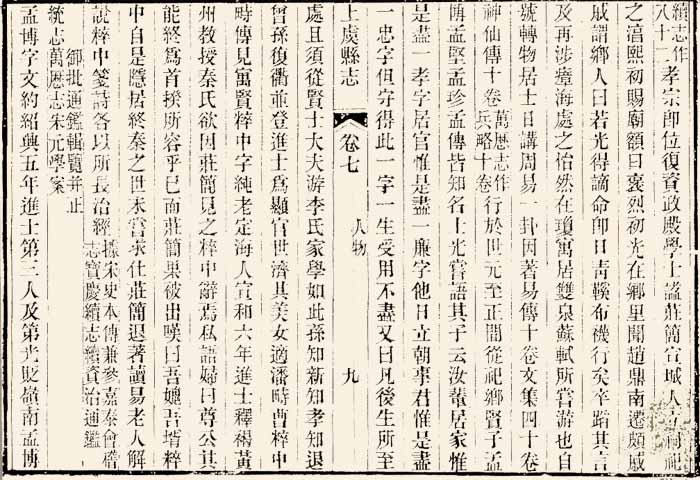 續志作八十二孝宗卽位復資政殿學士謚莊簡宣城人立祠祀
之淳熙初賜廟額曰褒烈初光在鄉里聞趙鼎南遷頗戚
戚謂鄉人曰若光得謫命卽日靑鞵布機行矣卒蹈其言
及再涉瘴海處之怡然在瓊寓居雙泉蘇軾所嘗游也自
號轉物居士日講周易一卦因著易傳十卷文集四十卷
神仙傳十卷萬厯志作兵略十卷行於世元至正間從祀鄉賢子孟
博孟堅孟珍孟傳皆知名士光嘗語其子云汝輩居家惟
是盡一孝字居官惟是盡一廉字他日立朝事君惟是盡
一忠字但守得此一字一生受用不盡又曰凡後生所至
上虞縣志 卷七 人物 九
處且須從賢士大夫游李氏家學如此孫知新知孝知退
曾孫復衢並登進士爲顯官世濟其美女適潘畤曹粹中
時傳見寓賢粹中字純老定海人宣和六年進士釋褐黃
州敎授秦氏欲因莊簡見之粹中辭焉私語婦曰尊公其
能終爲首揆所容乎已而莊簡果被出嘆曰吾媿吾壻粹
中自是隱居終秦之世未嘗求仕莊簡退著讀易老人解
說粹中箋詩各以所長治經據宋史本傳兼參嘉泰會稽志寶慶續志續資治通鑑
御批通鑑輯覽並正統志萬厯志宋元學案
孟博字文約紹興五年進士第三人及第光貶嶺南孟博